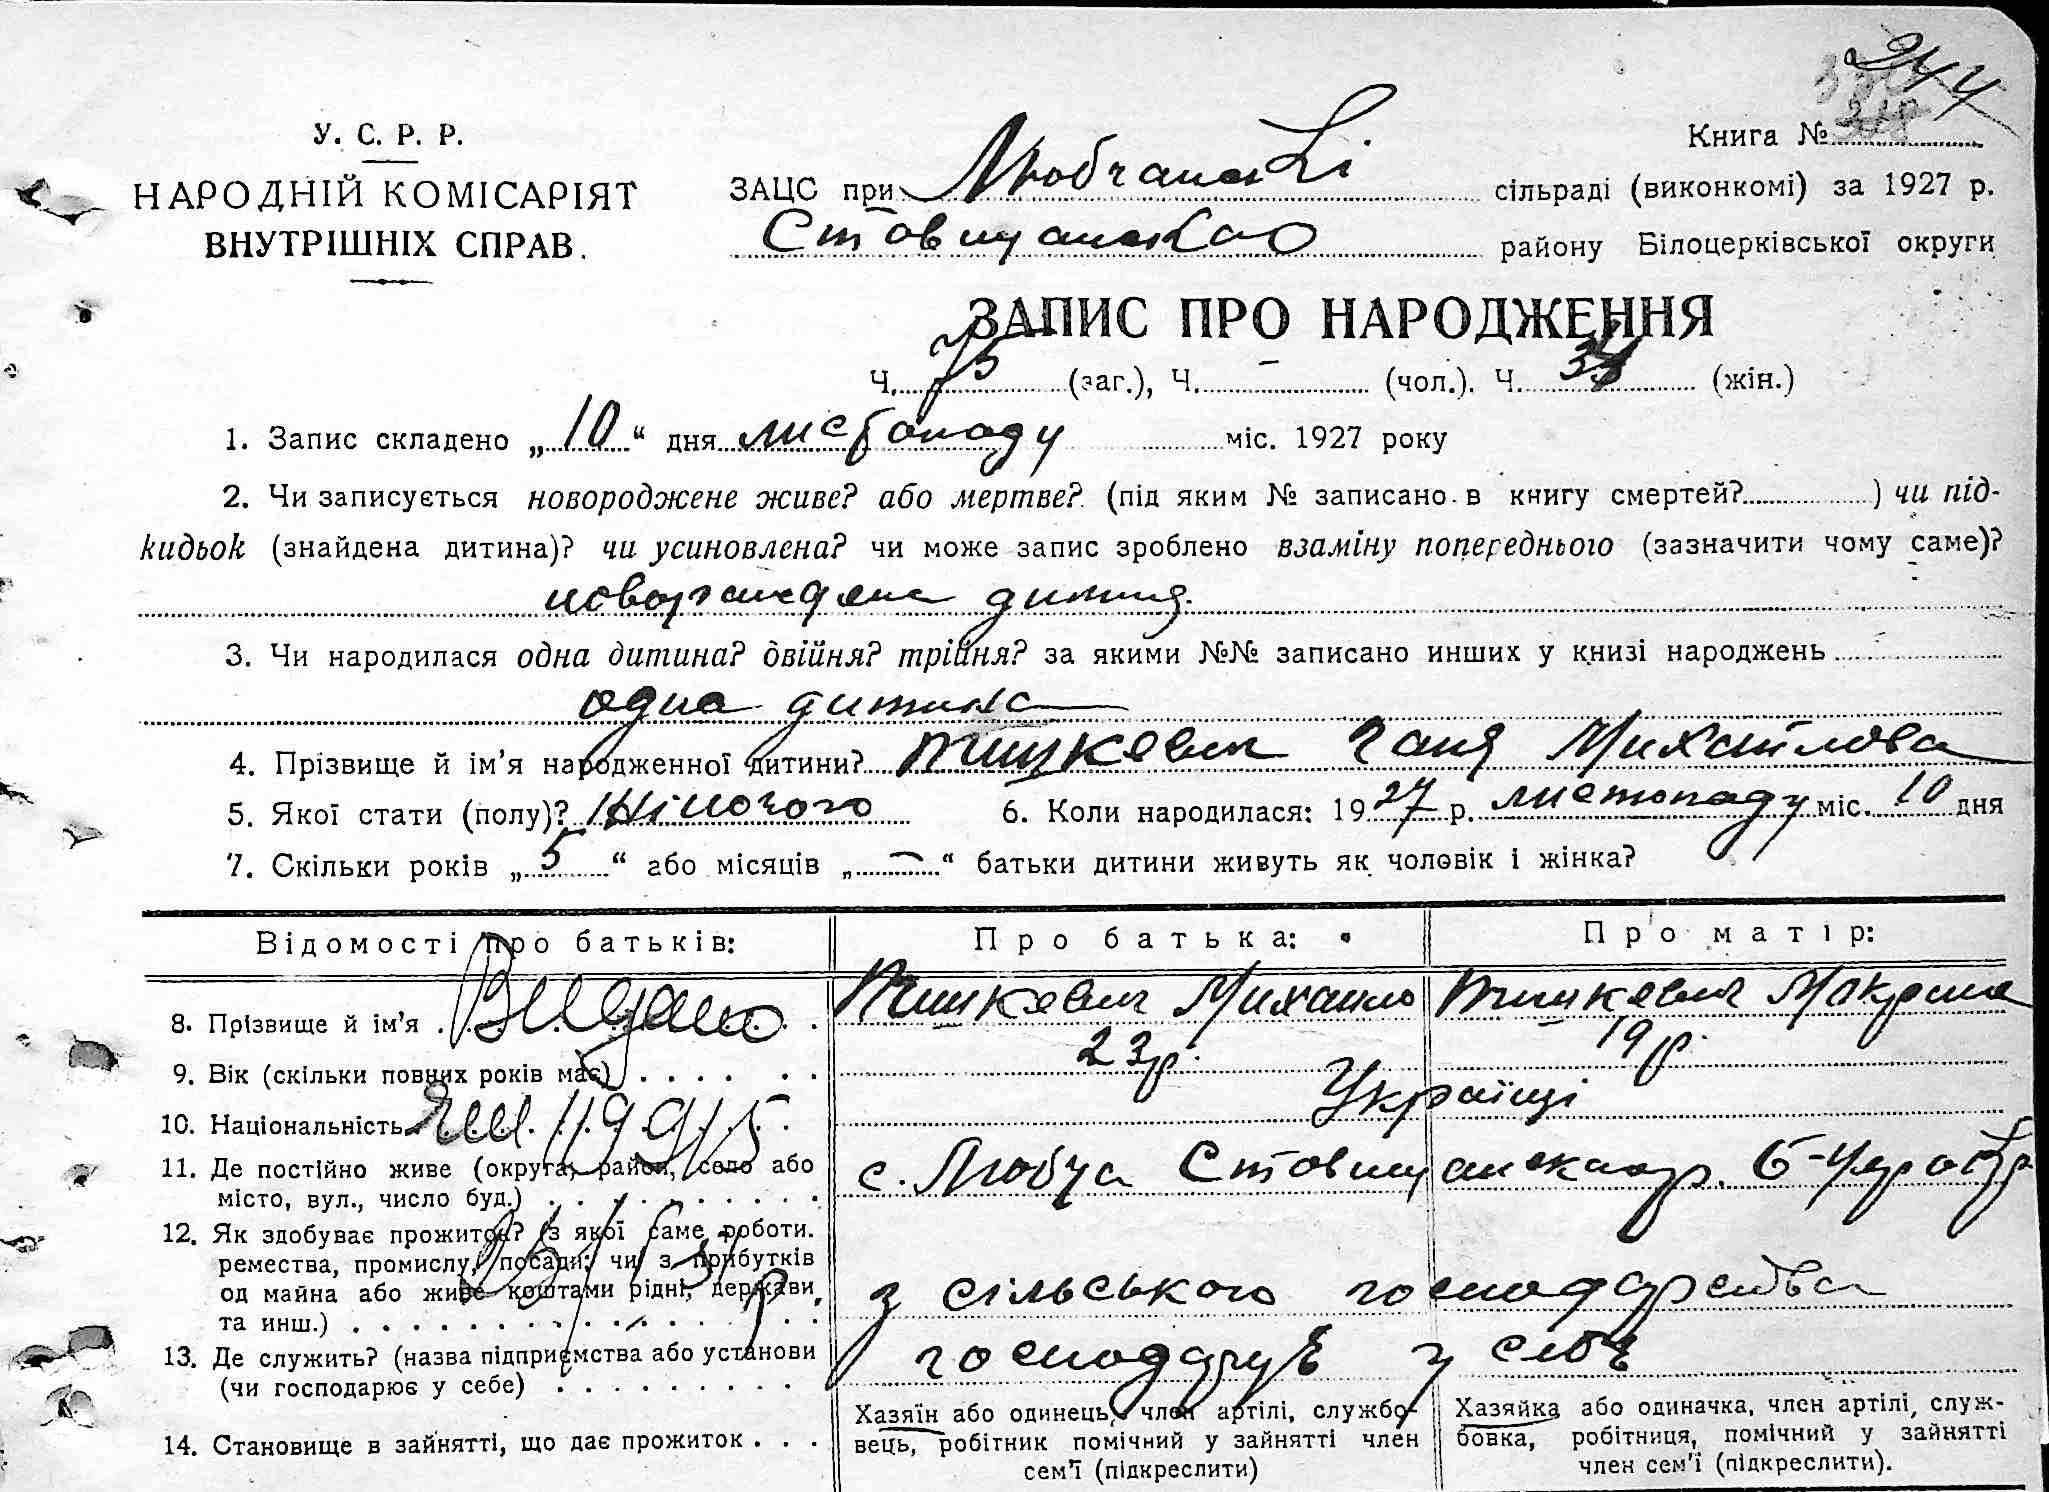 244
У. С. Р. Р.
Книга № 318
НАРОДНІЙ КОМІСАРІЯТ
ВНУТРІШНІХ СПРАВ.
ЗАЦС при Любчанскі сільраді (виконкомі) за 1927 р.
Ставищанско району Білоцерківської округи
ЗАПИС ПРО НАРОДЖЕННЯ
Ч. 75 (заг.), Ч. – (чол.). Ч. 34 (жін.)
1. Запис складено „10“ дня листопаду міс. 1927 року
2. Чи записується новороджене живе? або мертве? (під яким № записано в книгу смертей? ) чи під-
кидьок (знайдена дитина)? чи усиновлена? чи може запис зроблено взаміну попереднього (зазначити чому саме)?
дитина
3. Чи народилася одна дитина? двійня? трійня? за якими №№ записано инших у книзі народжень
одна дитина
4. Прізвище й ім'я народженної дитини? Ганя Михайлова
5. Якої стати (полу)? жіночого 6. Коли народилася: 1927 р. листопаду міс. 10 дня
7. Скільки років „5“ або місяців „–“ батьки дитини живуть як чоловік і жінка?
Відомості про батьків: Про батька: Про матір:
8. Прізвище й ім'я Видано Михайло Макрина
9. Вік (скільки повних років має) 23р. 19р.
10. Національність Українці
11. Де постійно живе (округа, район, село або
місто, вул., число буд.) с. Любча
12. Як здобуває прожиток? (з якої саме роботи.
ремества, промислу, посади; чи з прибутків
од майна або живе коштами рідні, держави,
та инш.) з сільського господарства
13. Де служить? (назва підприємства або установи
(чи господарює у себе) господарує у себе
14. Становище в зайнятті, що дає прожиток
Хазяїн або одинець, член артілі, службо-
вець, робітник помічний у зайнятті член
сем'ї (підкреслити)
Хазяйка або одиначка, член артілі, служ-
бовка, робітниця, помічний у зайнятті
член сем'ї (підкреслити).